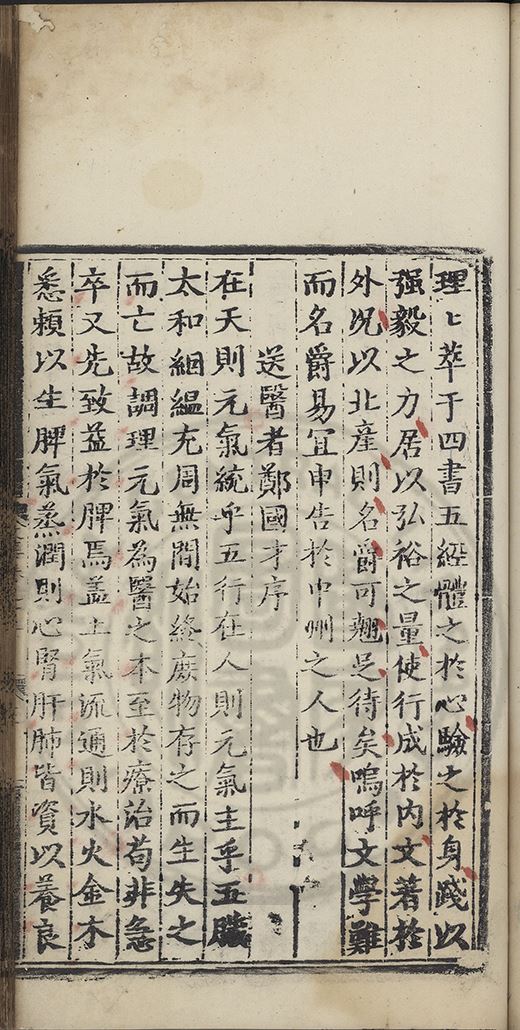 理〻萃于四書五經體之於心驗之於身踐以
强毅之力居以弘裕之量使行成於内文著於
外况以北產則名爵可翹足待矣嗚呼文學難
而名爵易宜申告於中州之人也
送醫者鄭國才序
在天則元氣統乎五行在人則元氣主乎五臟
太和絪緼充周無間始終庻物存之而生失之
而亡故調理元氣為醫之本至於療治苟非急
卒又先致益於脾焉盖土氣流通則水火金木
悉頼以生脾氣蒸潤則心腎肝肺皆資以養良